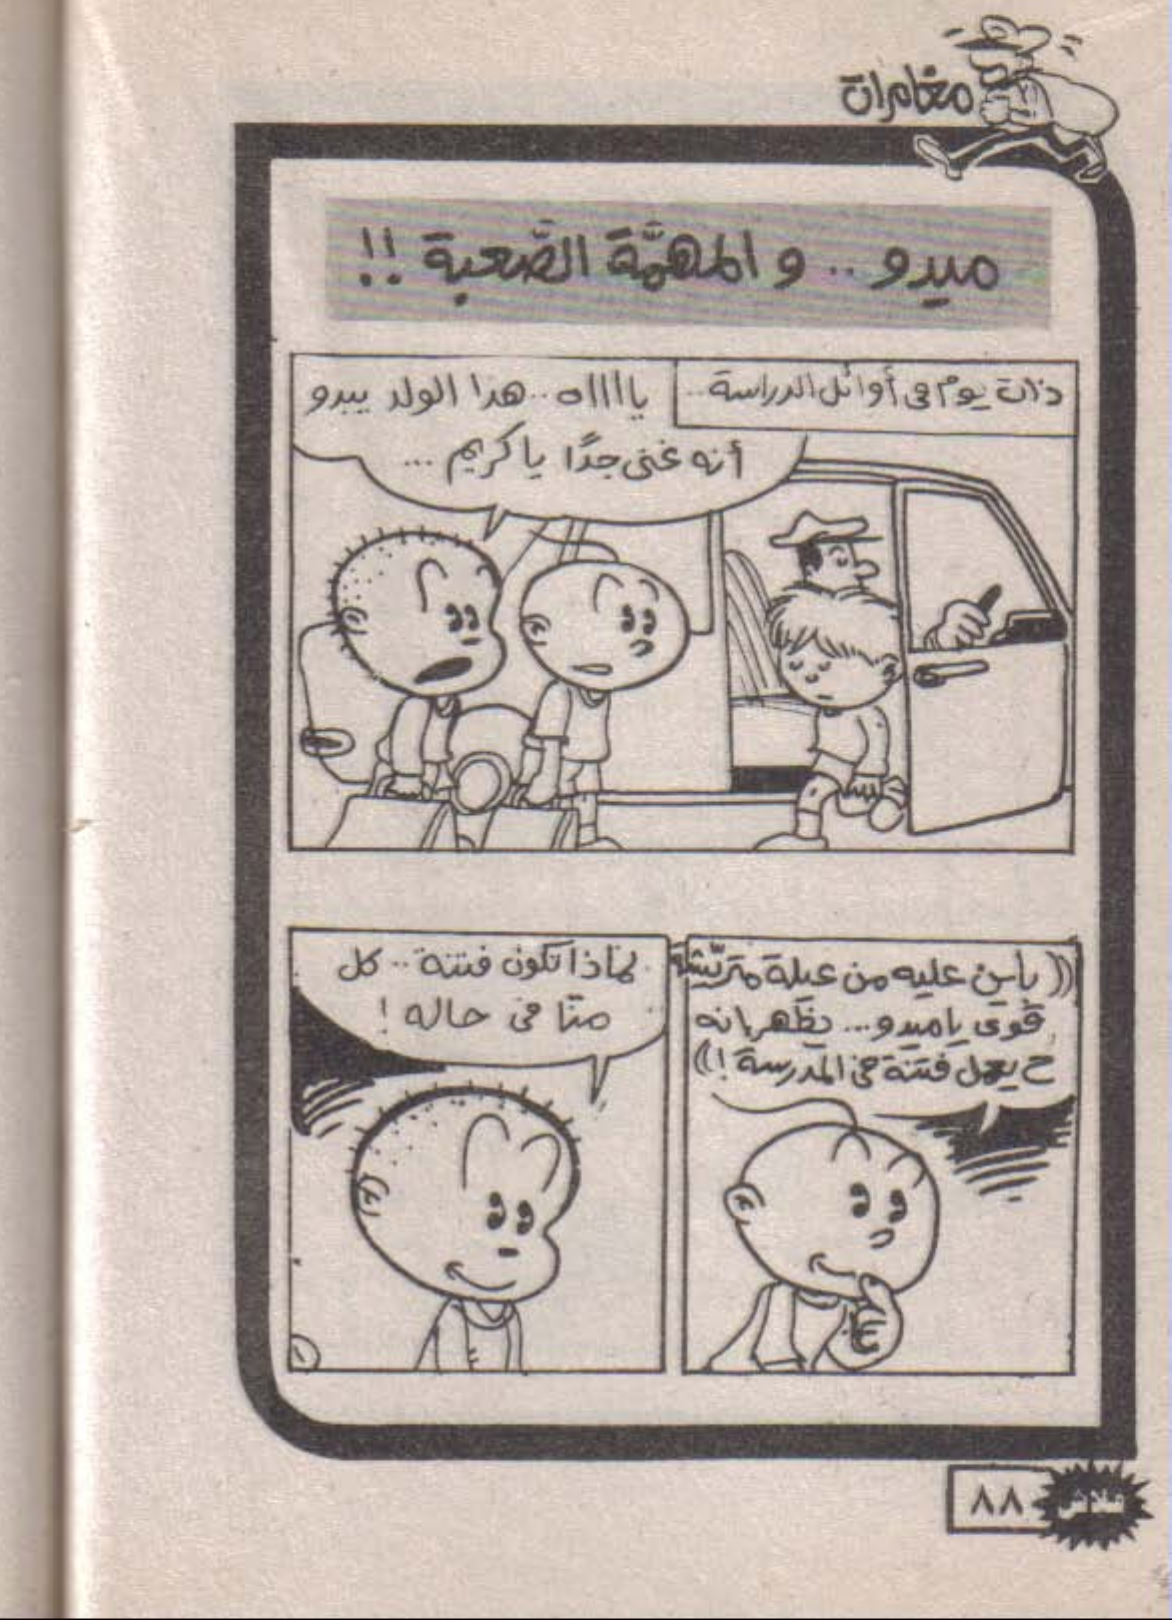 مغامرات
ميدو .. و المهمَّة الصَّعبة !!
ذات يوم فى أوائل الدراسة..
ياااااه .. هذا الولد يبدو
أنه غنى جدًا يا كريم ...
(( باين عليه من عيلة متريّشة
قوى يا ميدو... يظهر إنه
ح يعمل فتنة فى المدرسة !))
لماذا تكون فتنة .. كل
منّا فى حاله !
١
فلاش
٨٨